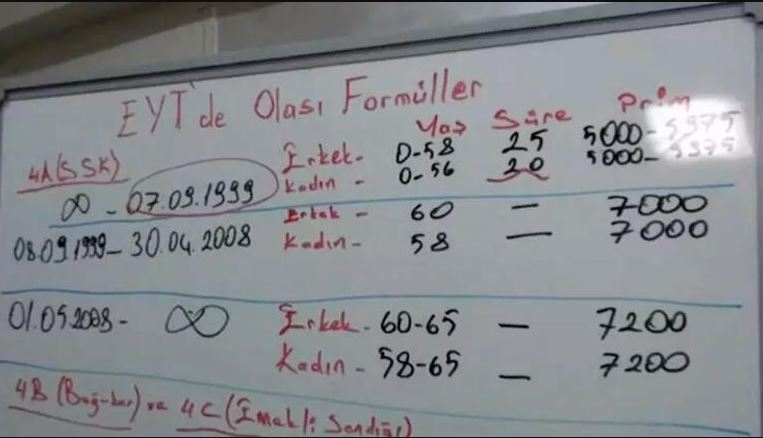 EYT'de Olası Formüller
Yaş Süre Prim
4A(SSK) Erkek- 0-58 25 5000-5975
Kadın - 0-56 20 5000-5975
∞ - 07.09.1999
Erkek - 60 - 7000
08.09.1999- 30.04.2008 Kadın- 58 - 7000
01.05.2008- ∞ Erkek - 60-65 - 7200
Kadın - 58-65 - 7200
4B (Bağ-kur) ve 4C (Emekli Sandığı)